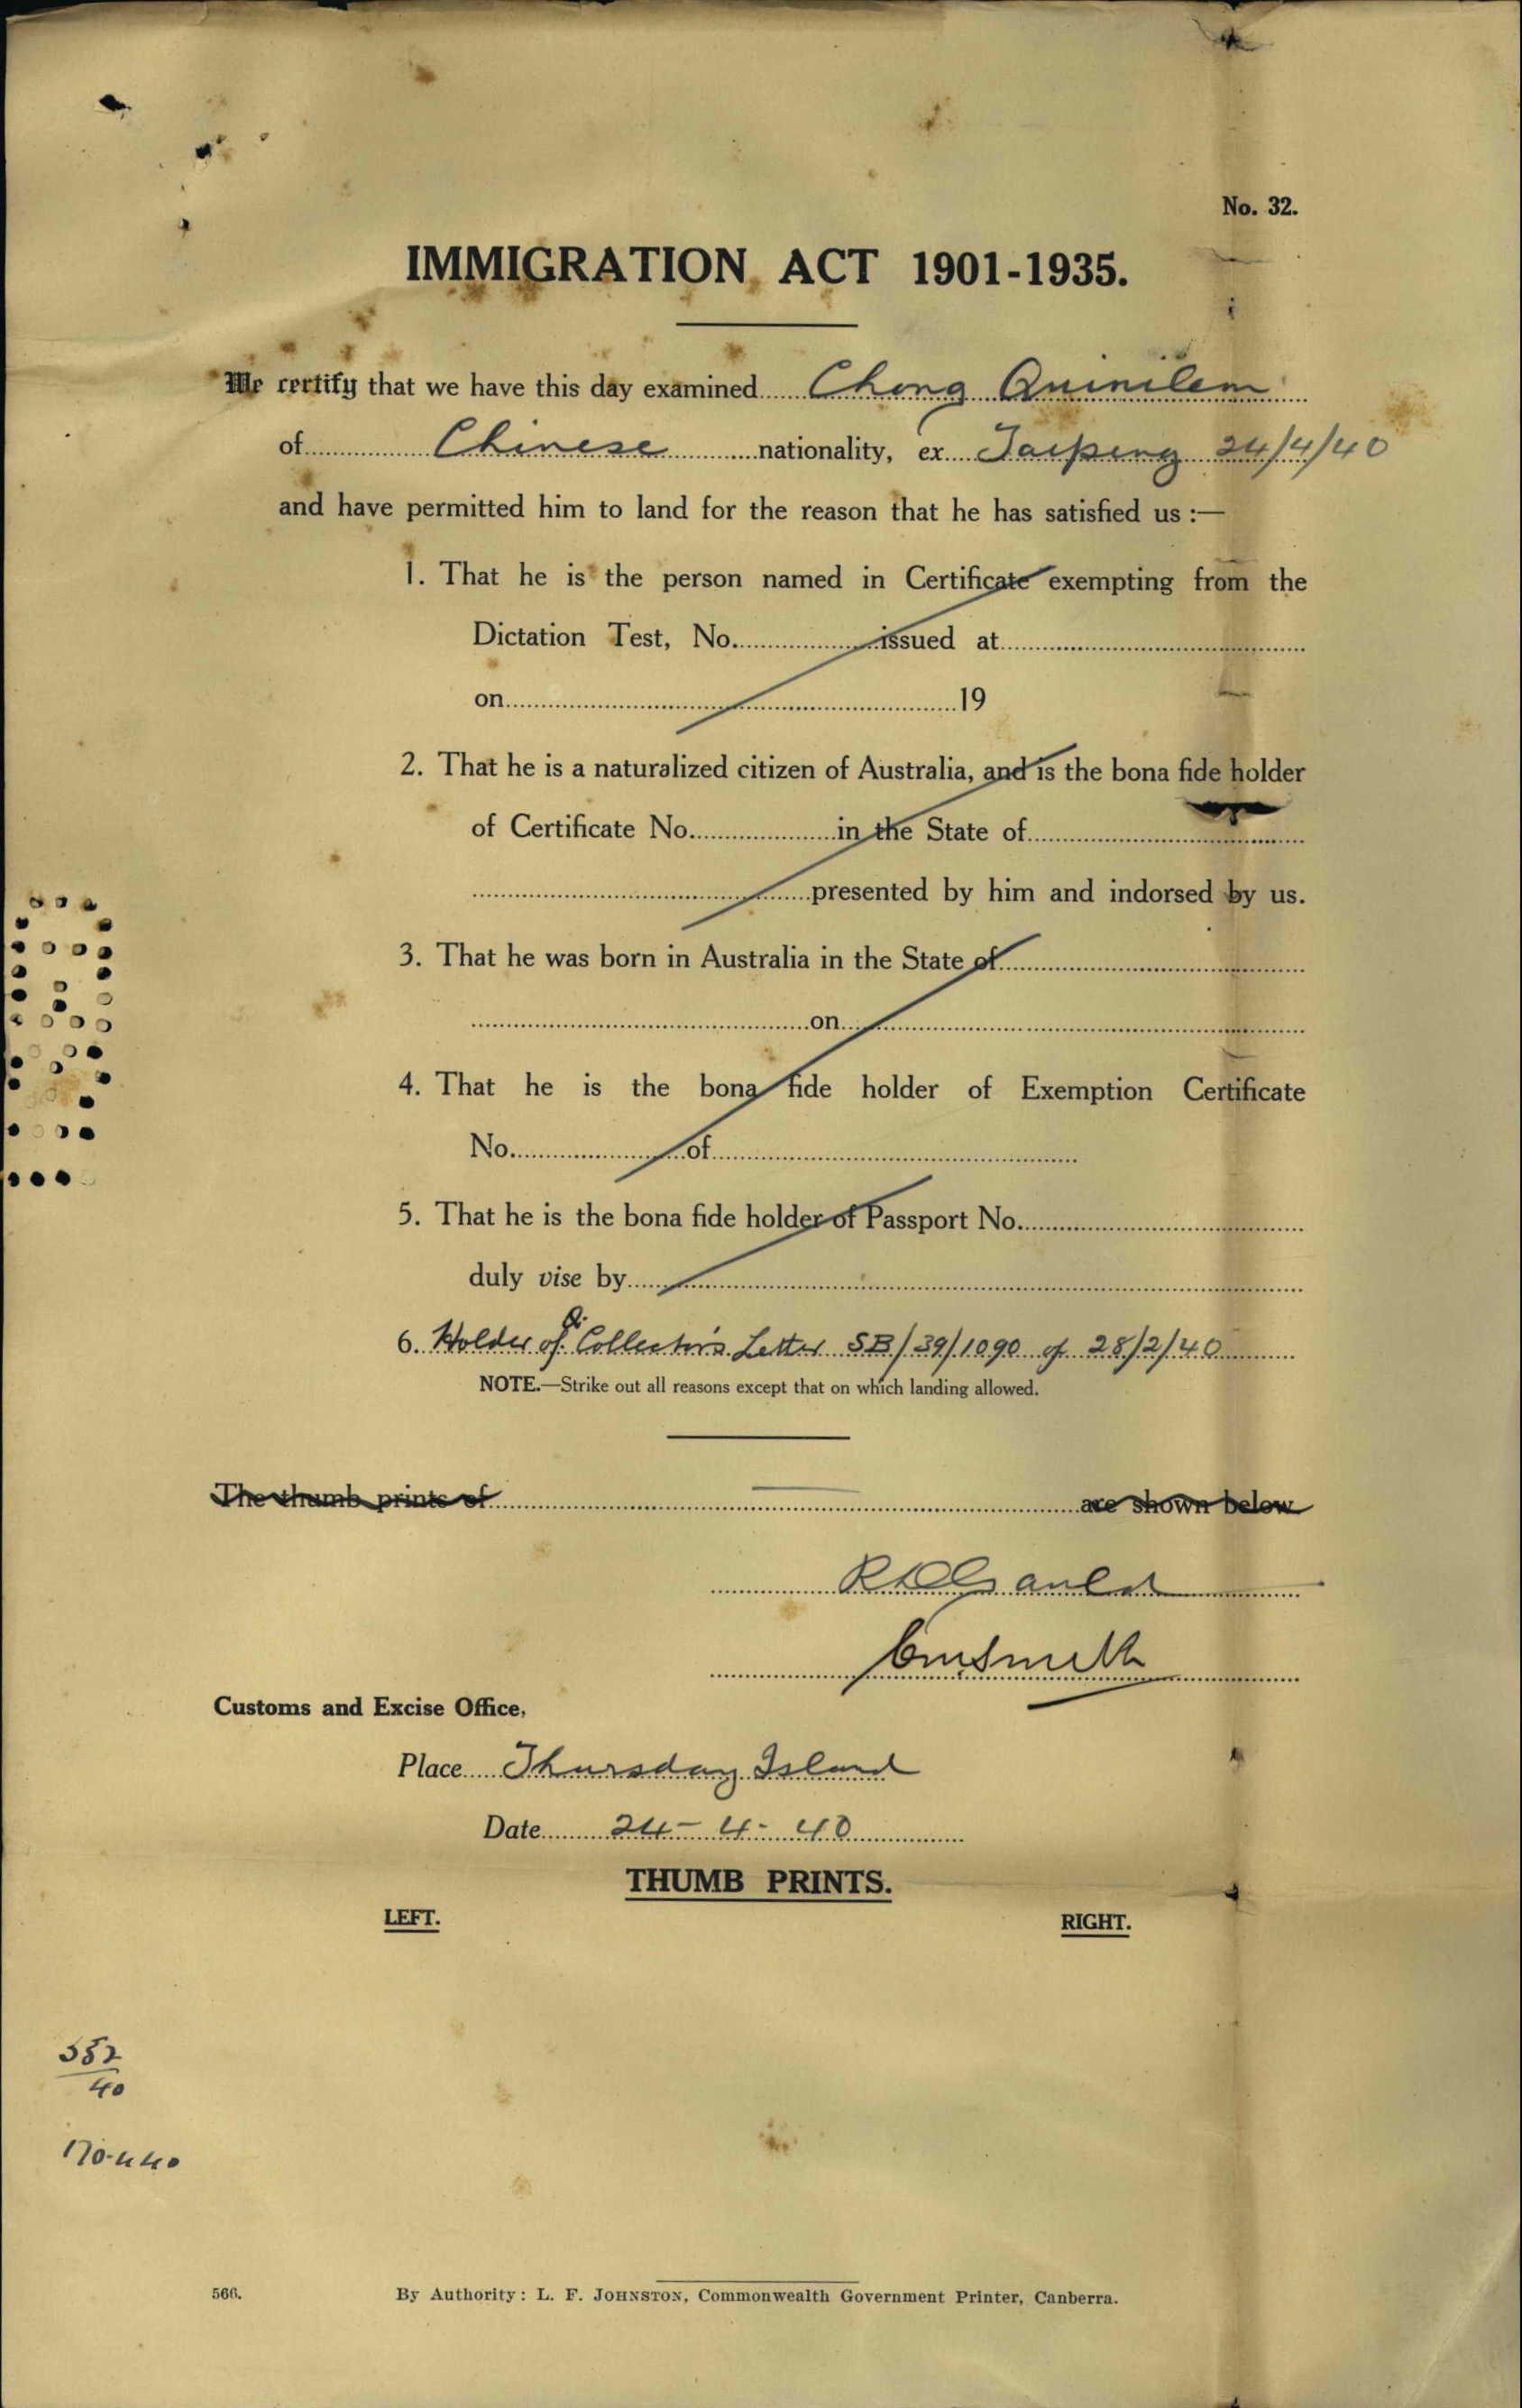 No. 32.
IMMIGRATION ACT 1901-1935.
We certify that we have this day examined Chong Quinilem
of Chinese nationality, ex Taiping 24/4/40
and have permitted him to land for the reason that he has satisfied us :—
1. That he is the person named in Certificate exempting from the
Dictation Test, No. issued at
on 19
2. That he is a naturalized citizen of Australia, and is the bona fide holder
of Certificate No. in the State of
presented by him and indorsed by us.
3. That he was born in Australia in the State of
on
4. That he is the bona fide holder of Exemption Certificate
No. of
5. That he is the bona fide holder of Passport No.
duly vise by
6. Holder of Q. Collector's Letter SB/39/1090 of 28/2/40
NOTE.—Strike out all reasons except that on which landing allowed.
The thumb prints of are shown below
Gauld
Smith
Customs and Excise Office,
Place Thursday Island
Date 24-4-40
THUMB PRINTS.
LEFT. RIGHT.
40
566. By Authority: L. F. JOHNSTON, Commonwealth Government Printer, Canberra.